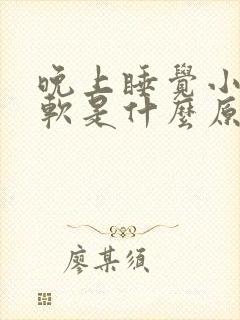 晚上睡覺小
軟是什麼原
廖某须